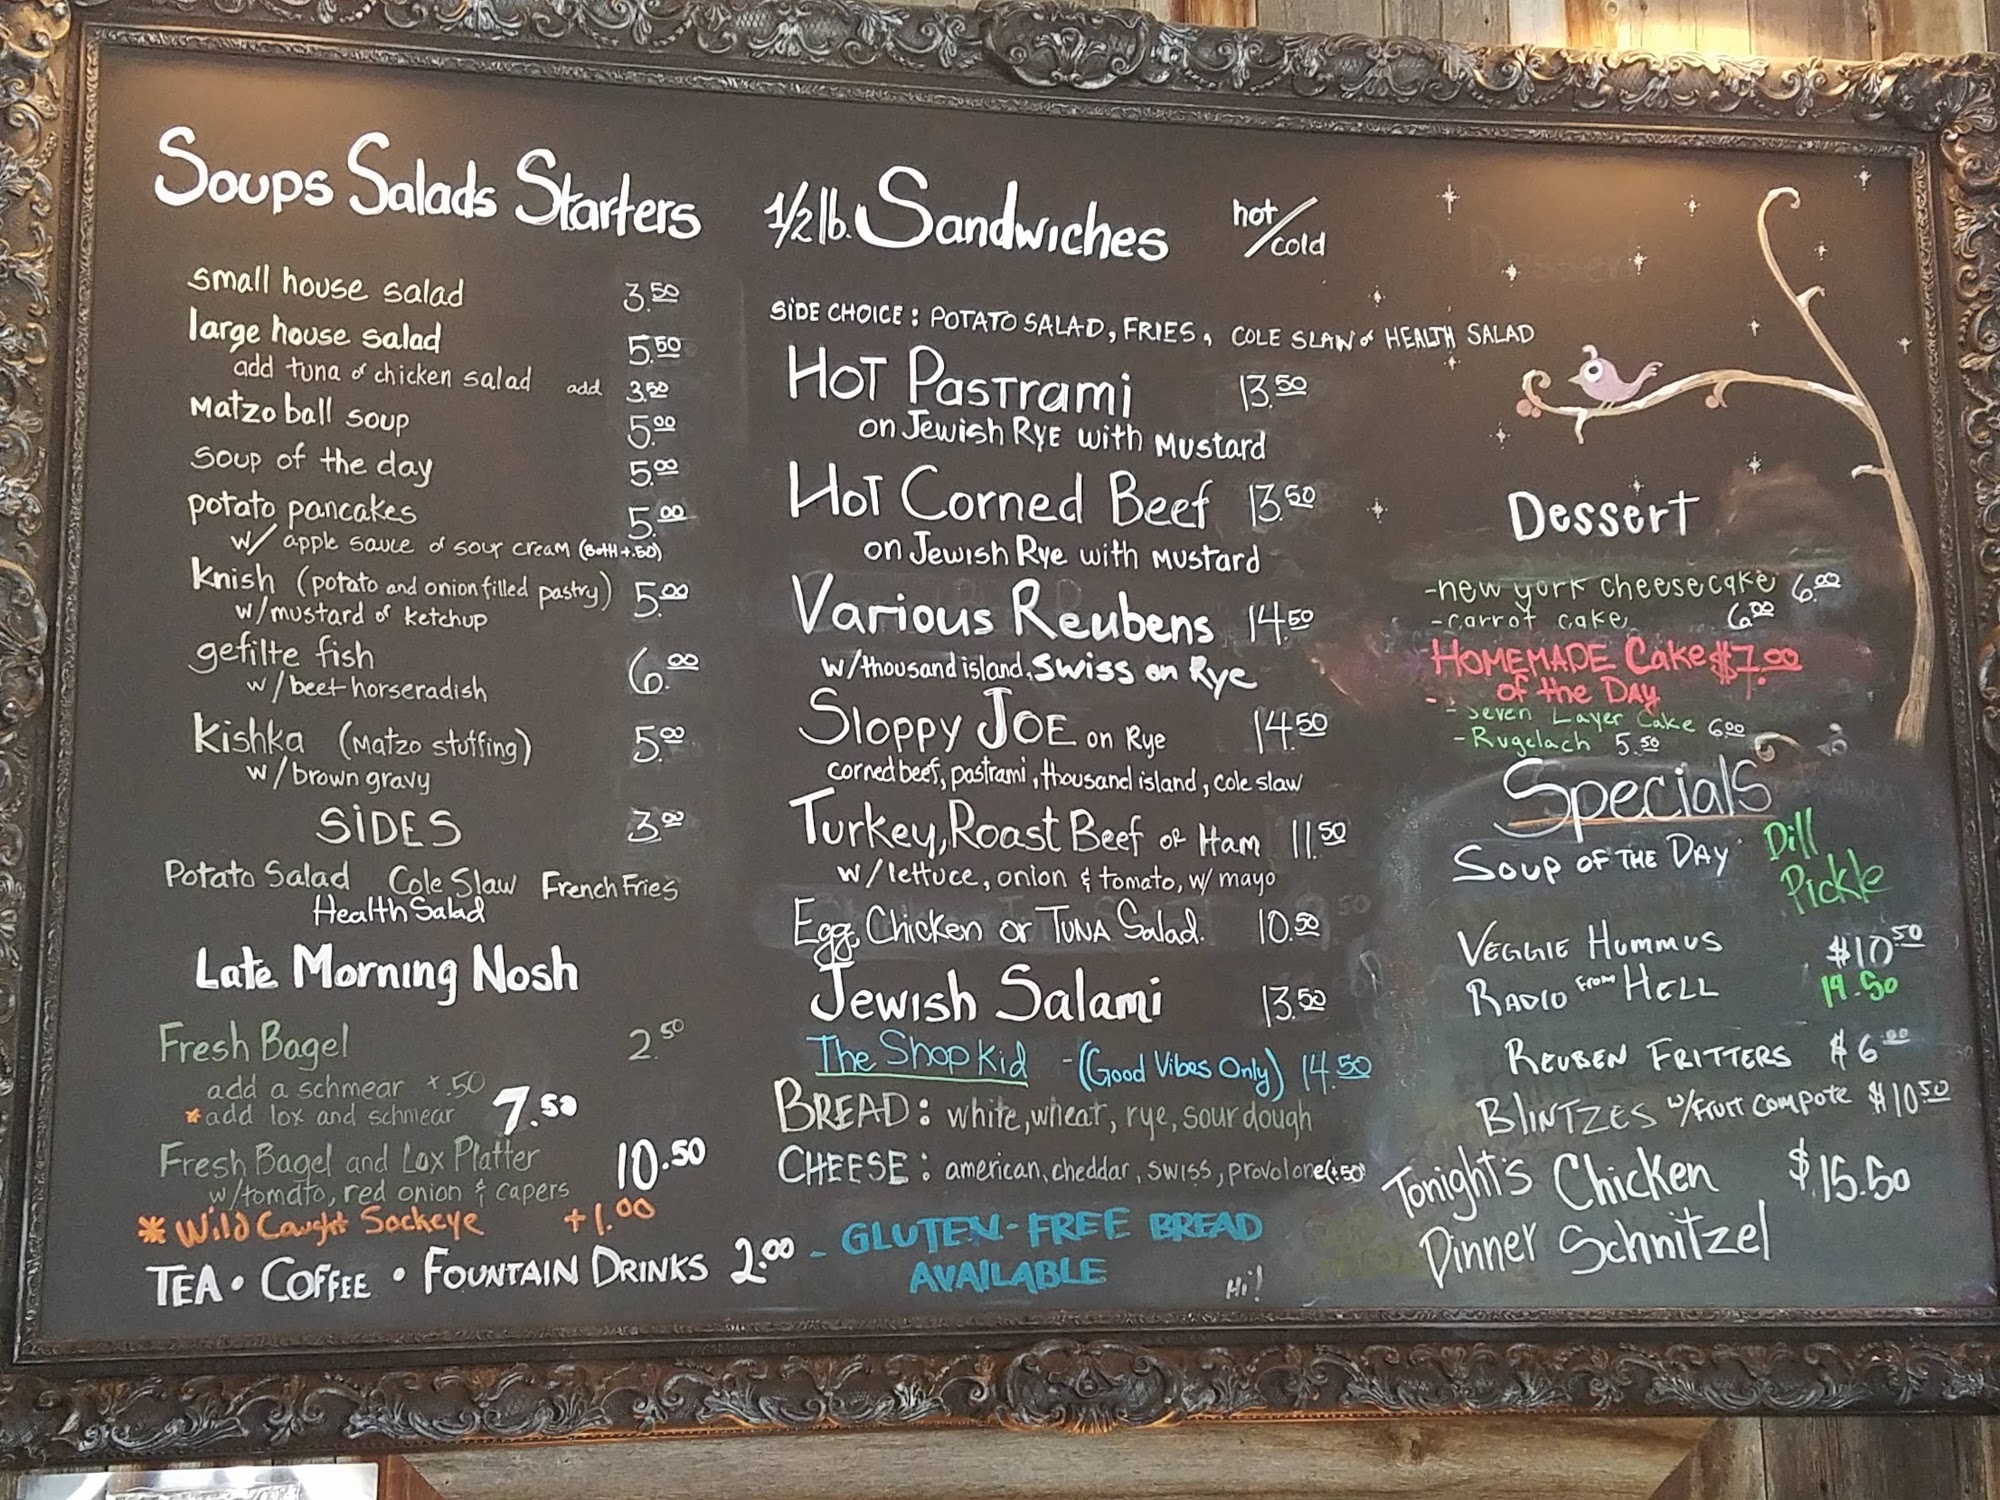 Soups Salads Starters
small house salad 3.50
large house salad 5.50
add tuna or chicken salad add 3.50
Matzo ball soup 5.00
soup of the day 5.00
potato pancakes 5.00
w/ apple sauce or sour cream (Both +.50)
knish (potato and onion filled pastry) 5.00
w/mustard or ketchup
gefilte fish 6.00
w/beet horseradish
kishka (Matzo stuffing) 5.00
w/brown gravy
SIDES 3.00
Potato Salad Cole Slaw French Fries
Health Salad
Late Morning Nosh
Fresh Bagel 2.50
add a schmear +.50
*add lox and schmear 7.50
Fresh Bagel and Lox Platter 10.50
w/tomato, red onion & capers
* Wild Caught Sockeye +1.00
TEA • COFFEE • FOUNTAIN DRINKS 2.00
1/2 lb. Sandwiches hot/cold
SIDE CHOICE: POTATO SALAD, FRIES, COLE SLAW or HEALTH SALAD
HOT PASTRAMI 13.50
on Jewish Rye with Mustard
HOT Corned Beef 13.50
on Jewish Rye with Mustard
Various Reubens 14.50
w/thousand island, Swiss on Rye
Sloppy JOE on Rye 14.50
corned beef, pastrami, thousand island, cole slaw
Turkey, Roast Beef or Ham 11.50
w/lettuce, onion & tomato, w/ mayo
Egg, Chicken or TUNA Salad. 10.50
Jewish Salami 13.50
The Shop Kid - (Good Vibes Only) 14.50
BREAD: white, wheat, rye, sour dough
CHEESE: american, cheddar, swiss, provolone (+.50)
- GLUTEN-FREE BREAD
AVAILABLE
Hi!
Dessert
-new york cheesecake 6.00
-carrot cake 6.00
HOMEMADE Cake $7.00
of the DAY
- Seven Layer Cake 6.00
- Rugelach 5.50
Specials
SOUP OF THE DAY Dill
Pickle
VEGGIE HUMMUS $10.50
RADIO FROM HELL 14.50
REUBEN FRITTERS $6.00
BLINTZES w/FRUIT COMPOTE $10.50
Tonight's Chicken $15.50
Dinner Schnitzel